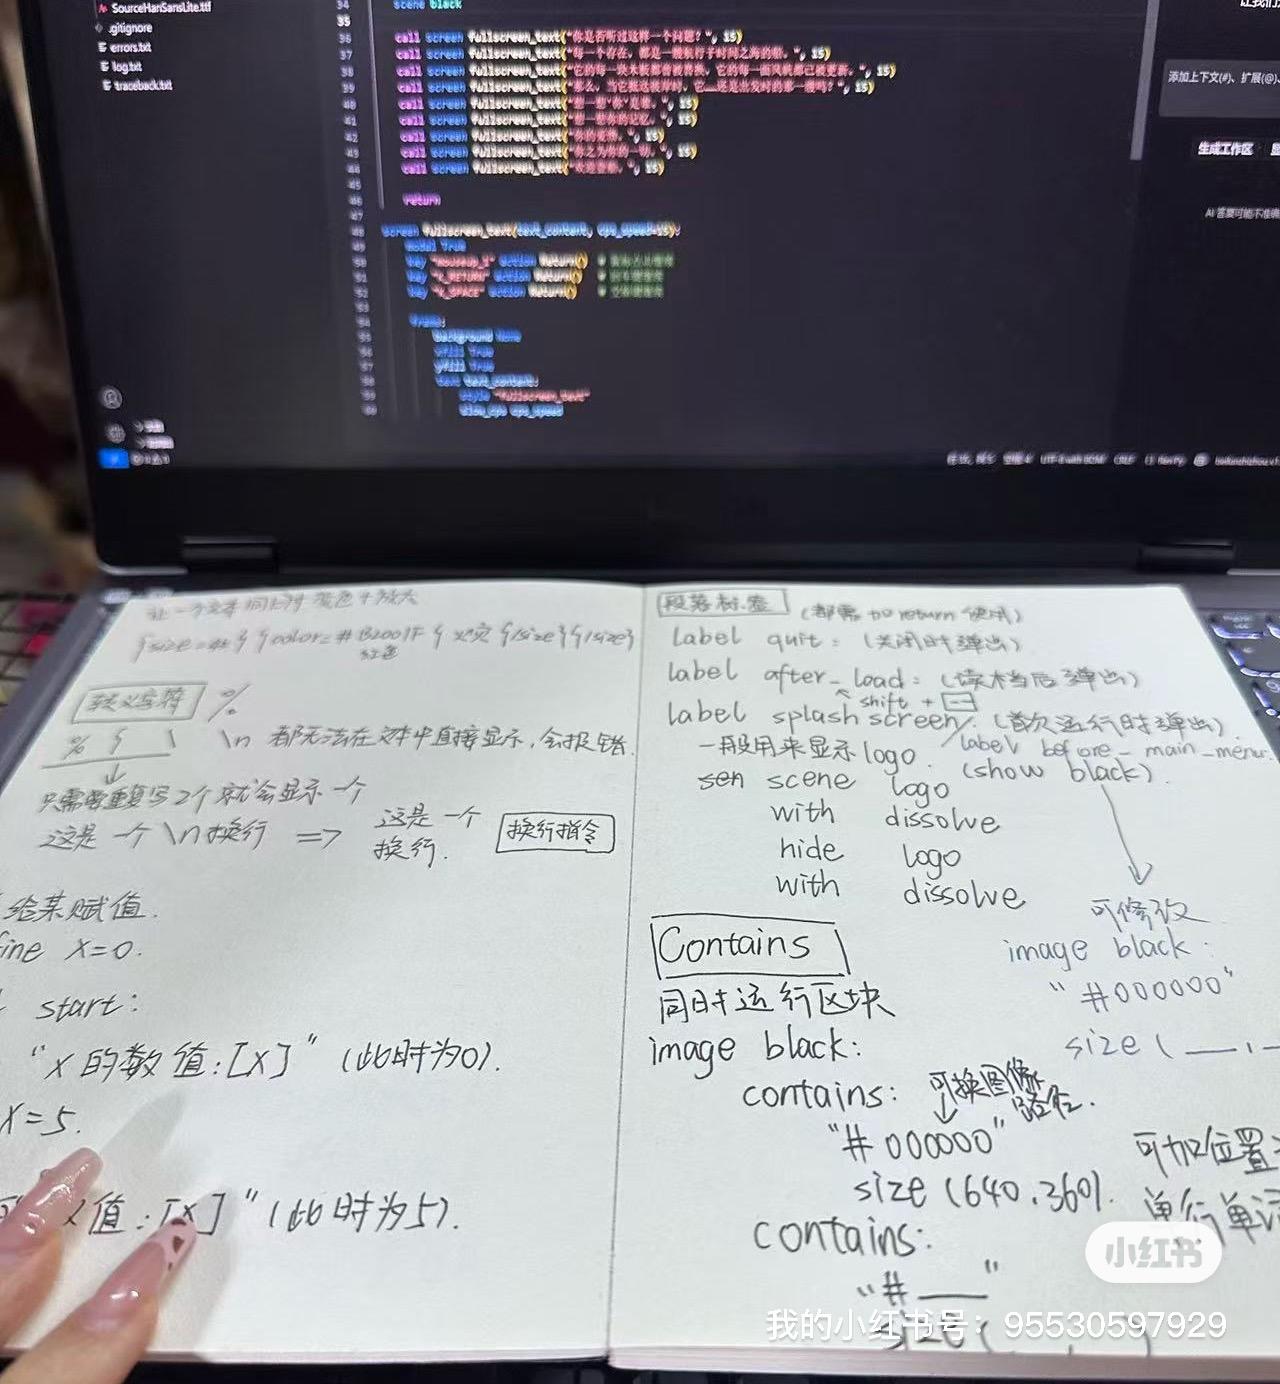 SourceHanSansLite.ttf
.gitignore
errors.txt
log.txt
traceback.txt
34 scene black
35
36 call screen fullscreen_text("你是否听过这样一个问题？", 15)
37 call screen fullscreen_text("每一个存在，都是一艘航行于时间之海的船。", 15)
38 call screen fullscreen_text("它的每一块木板都曾被替换，它的每一面风帆都已被更新。", 15)
39 call screen fullscreen_text("那么，当它抵达彼岸时，它 还是出发时的那一艘吗？", 15)
40 call screen fullscreen_text("想一想"你"是谁。", 15)
41 call screen fullscreen_text("想一想你的记忆。", 15)
42 call screen fullscreen_text("你的 ", 15)
43 call screen fullscreen_text("你之为你的一切。", 15)
44 call screen fullscreen_text(" ", 15)
45
46 return
47
48 screen fullscreen_text(text_content, cps_speed=15):
modal True
key action Return()
key "K_RETURN" action Return()
key "K_SPACE" action Return()
frame:
background None
xfill True
yfill True
text text_content:
style "fullscreen_text"
slow_cps cps_speed
添加上下文(#)、扩展(@)、
生成工作区
AI 答案可能不准确
UTF-8 with BOM CRLF
让一个文本同时 变色+放大
{size=+ } {color=#B2001F { 火灾 {/size}{/size}
红色
转义字符 %
% { \ \n 都无法在文本中直接显示，会报错.
只需要重复写2个就会显示一个
这是一个\n换行 => 这是一个
换行. 换行指令
给某赋值.
fine x=0.
start:
"x的数值:[x]" (此时为0).
x=5.
值:[x]" (此时为5).
段落标签 (都需加return使用)
label quit: (关闭时弹出)
label after_load: (读档后弹出)
shift + -
label splashscreen/. (首次运行时弹出).
一般用来显示logo. /label before_main_menu:
(show black).
scene logo
with dissolve
hide logo
with dissolve
可修改
image black:
"#000000"
size(__,_
Contains
同时运行区块
image black:
contains: 可换图像路径.
"#000000"
size(640,360).
可加位置
单行单
contains:
"#___"
size( , )
小红书
我的小红书号：95530597929